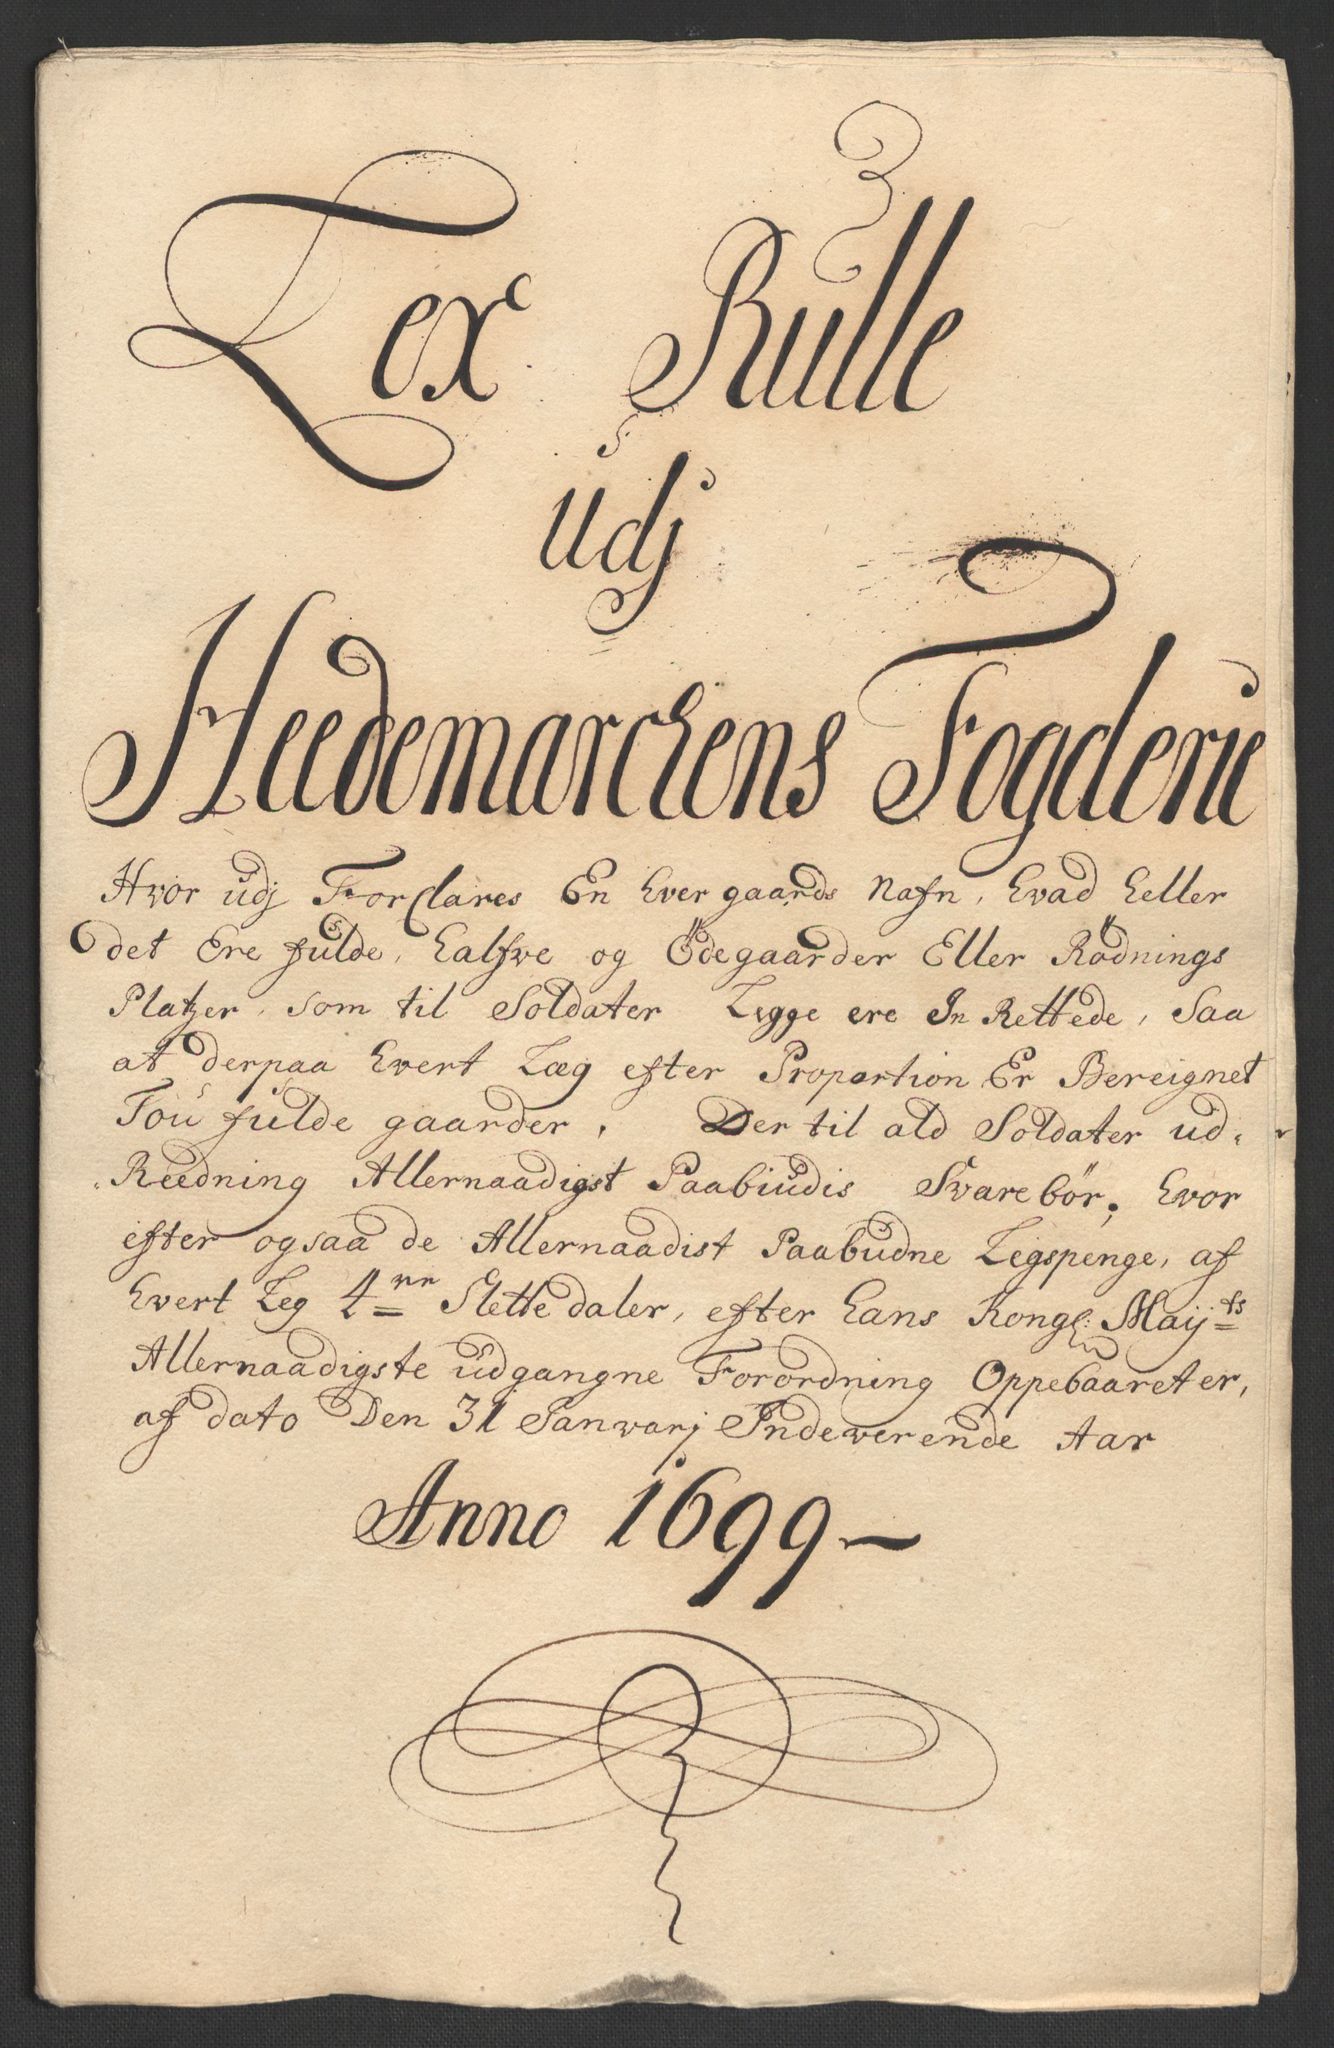 Lex Rulle
udj
Heedemarckens Fogderie
Hvor udj Forclares En hver gaards Nafn, hvad heller
det Ere fulde, halfve og Ödegaarder Eller Rödnings
Platzer, som til Soldater Legge ere In Rettede, Saa
at derpaa hvert Læg efter Proportion Er Bereignet
Tou fulde gaarder, Der til ald Soldater ud-
Reedning Allernaadigst Paabiudis Svare bör; hvor
efter ogsaa de Allernaadist Paabudne Legspenge, af
hvert Leg 4re Slette daler, efter hans Kongl: Mayts
Allernaadigste udgangne Forordning Oppebaaret er,
af dato Den 31 Janvarj Indeverende Aar
Anno 1699